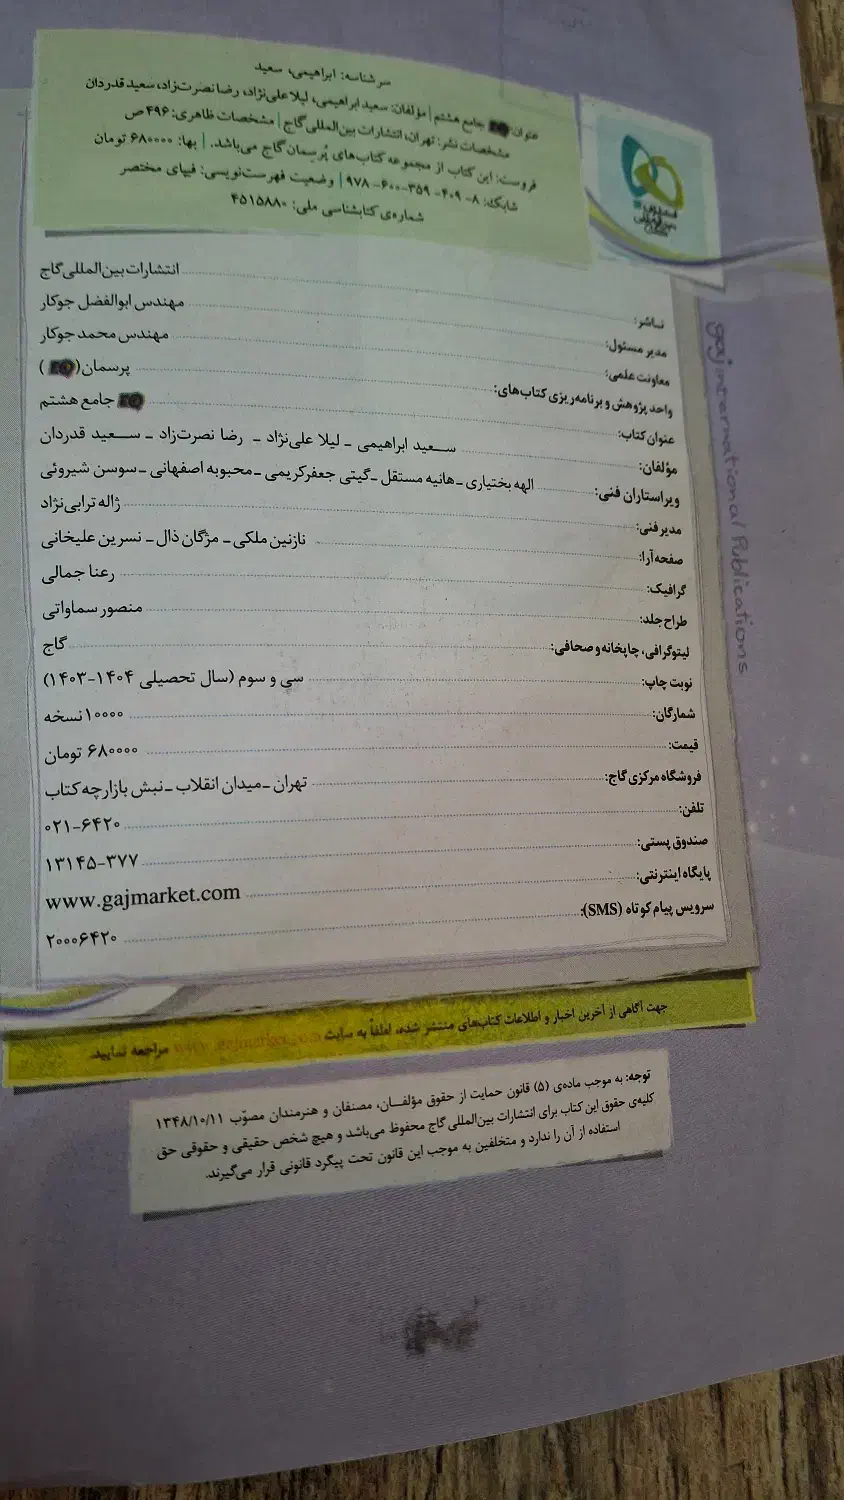 سرشناسه: ابراهیمی، سعید
عنوان: EQ جامع هشتم | مؤلفان: سعید ابراهیمی، لیلا علی‌نژاد، رضا نصرت‌زاد، سعید قدردان
مشخصات نشر: تهران، انتشارات بین‌المللی گاج | مشخصات ظاهری: ۴۹۶ ص
فروست: این کتاب از مجموعه کتاب‌های پُرسِمان گاج می‌باشد. | بها: ۶۸۰۰۰۰ تومان
شابک: ۸-۴۰۹-۳۵۹-۶۰۰-۹۷۸ | وضعیت فهرست‌نویسی: فیپای مختصر
شماره‌ی کتابشناسی ملی: ۴۵۱۵۸۸۰
gaj international Publications
ناشر: انتشارات بین‌المللی گاج
مدیر مسئول: مهندس ابوالفضل جوکار
معاونت علمی: مهندس محمد جوکار
واحد پژوهش و برنامه‌ریزی کتاب‌های: پرسمان (EQ)
عنوان کتاب: EQ جامع هشتم
مؤلفان: سعید ابراهیمی - لیلا علی‌نژاد - رضا نصرت‌زاد - سعید قدردان
ویراستاران فنی: الهه بختیاری - هانیه مستقل - گیتی جعفرکریمی - محبوبه اصفهانی - سوسن شیروئی
مدیر فنی: ژاله ترابی‌نژاد
صفحه‌آرا: نازنین ملکی - مژگان ذال - نسرین علیخانی
گرافیک: رعنا جمالی
طراح جلد: منصور سماواتی
لیتوگرافی، چاپخانه و صحافی: گاج
نوبت چاپ: سی و سوم (سال تحصیلی ۱۴۰۴-۱۴۰۳)
شمارگان: ۱۰۰۰۰ نسخه
قیمت: ۶۸۰۰۰۰ تومان
فروشگاه مرکزی گاج: تهران - میدان انقلاب - نبش بازارچه کتاب
تلفن: ۰۲۱-۶۴۲۰
صندوق پستی: ۱۳۱۴۵-۳۷۷
پایگاه اینترنتی: www.gajmarket.com
سرویس پیام کوتاه (SMS): ۲۰۰۰۶۴۲۰
جهت آگاهی از آخرین اخبار و اطلاعات کتاب‌های منتشر شده، لطفاً به سایت www.gajmarket.com مراجعه نمایید.
توجه: به موجب ماده‌ی (۵) قانون حمایت از حقوق مؤلفان، مصنفان و هنرمندان مصوّب ۱۳۴۸/۱۰/۱۱
کلیه‌ی حقوق این کتاب برای انتشارات بین‌المللی گاج محفوظ می‌باشد و هیچ شخص حقیقی و حقوقی حق
استفاده از آن را ندارد و متخلفین به موجب این قانون تحت پیگرد قانونی قرار می‌گیرند.